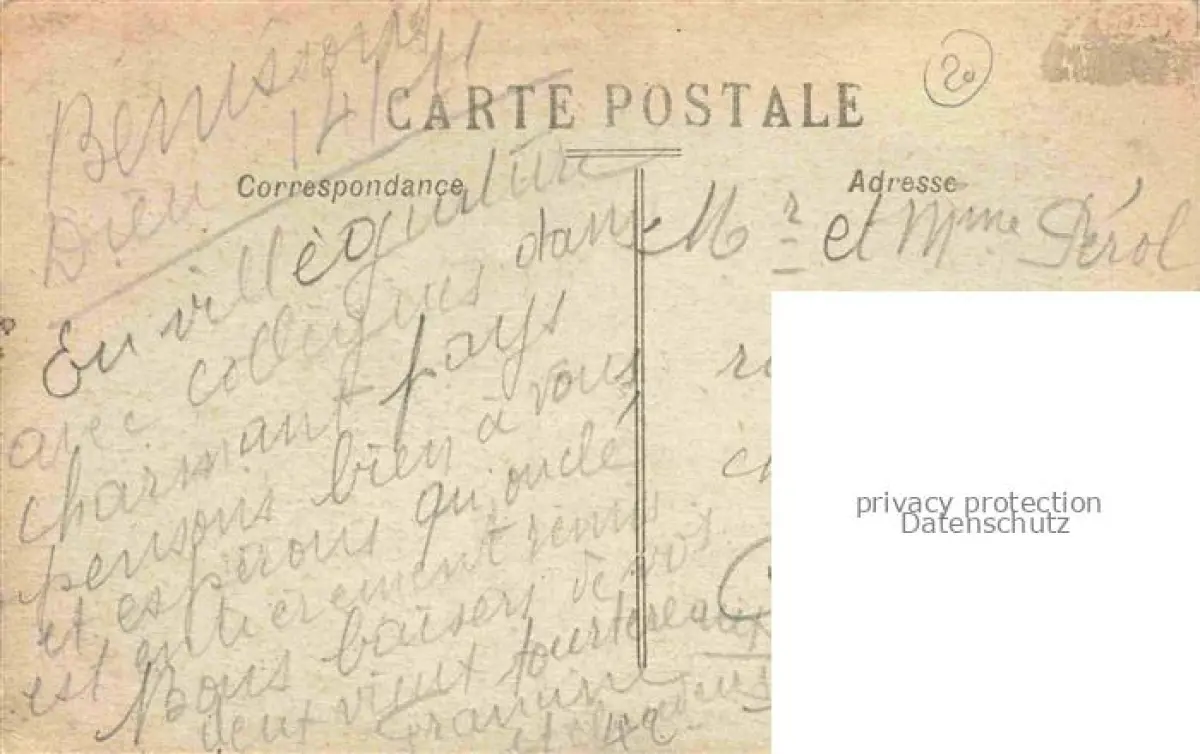 Bénissons
14/4
Dieu
CARTE POSTALE
20
Correspondance
Adresse
En villégiature
avec collègues dans
charmant pays
pensons bien à vous
et espérons qu'oncle
est entièrement remis
Bons baisers de vos
deux vieux tourtereaux
et
Mr et Mme Pérol
privacy protection
Datenschutz